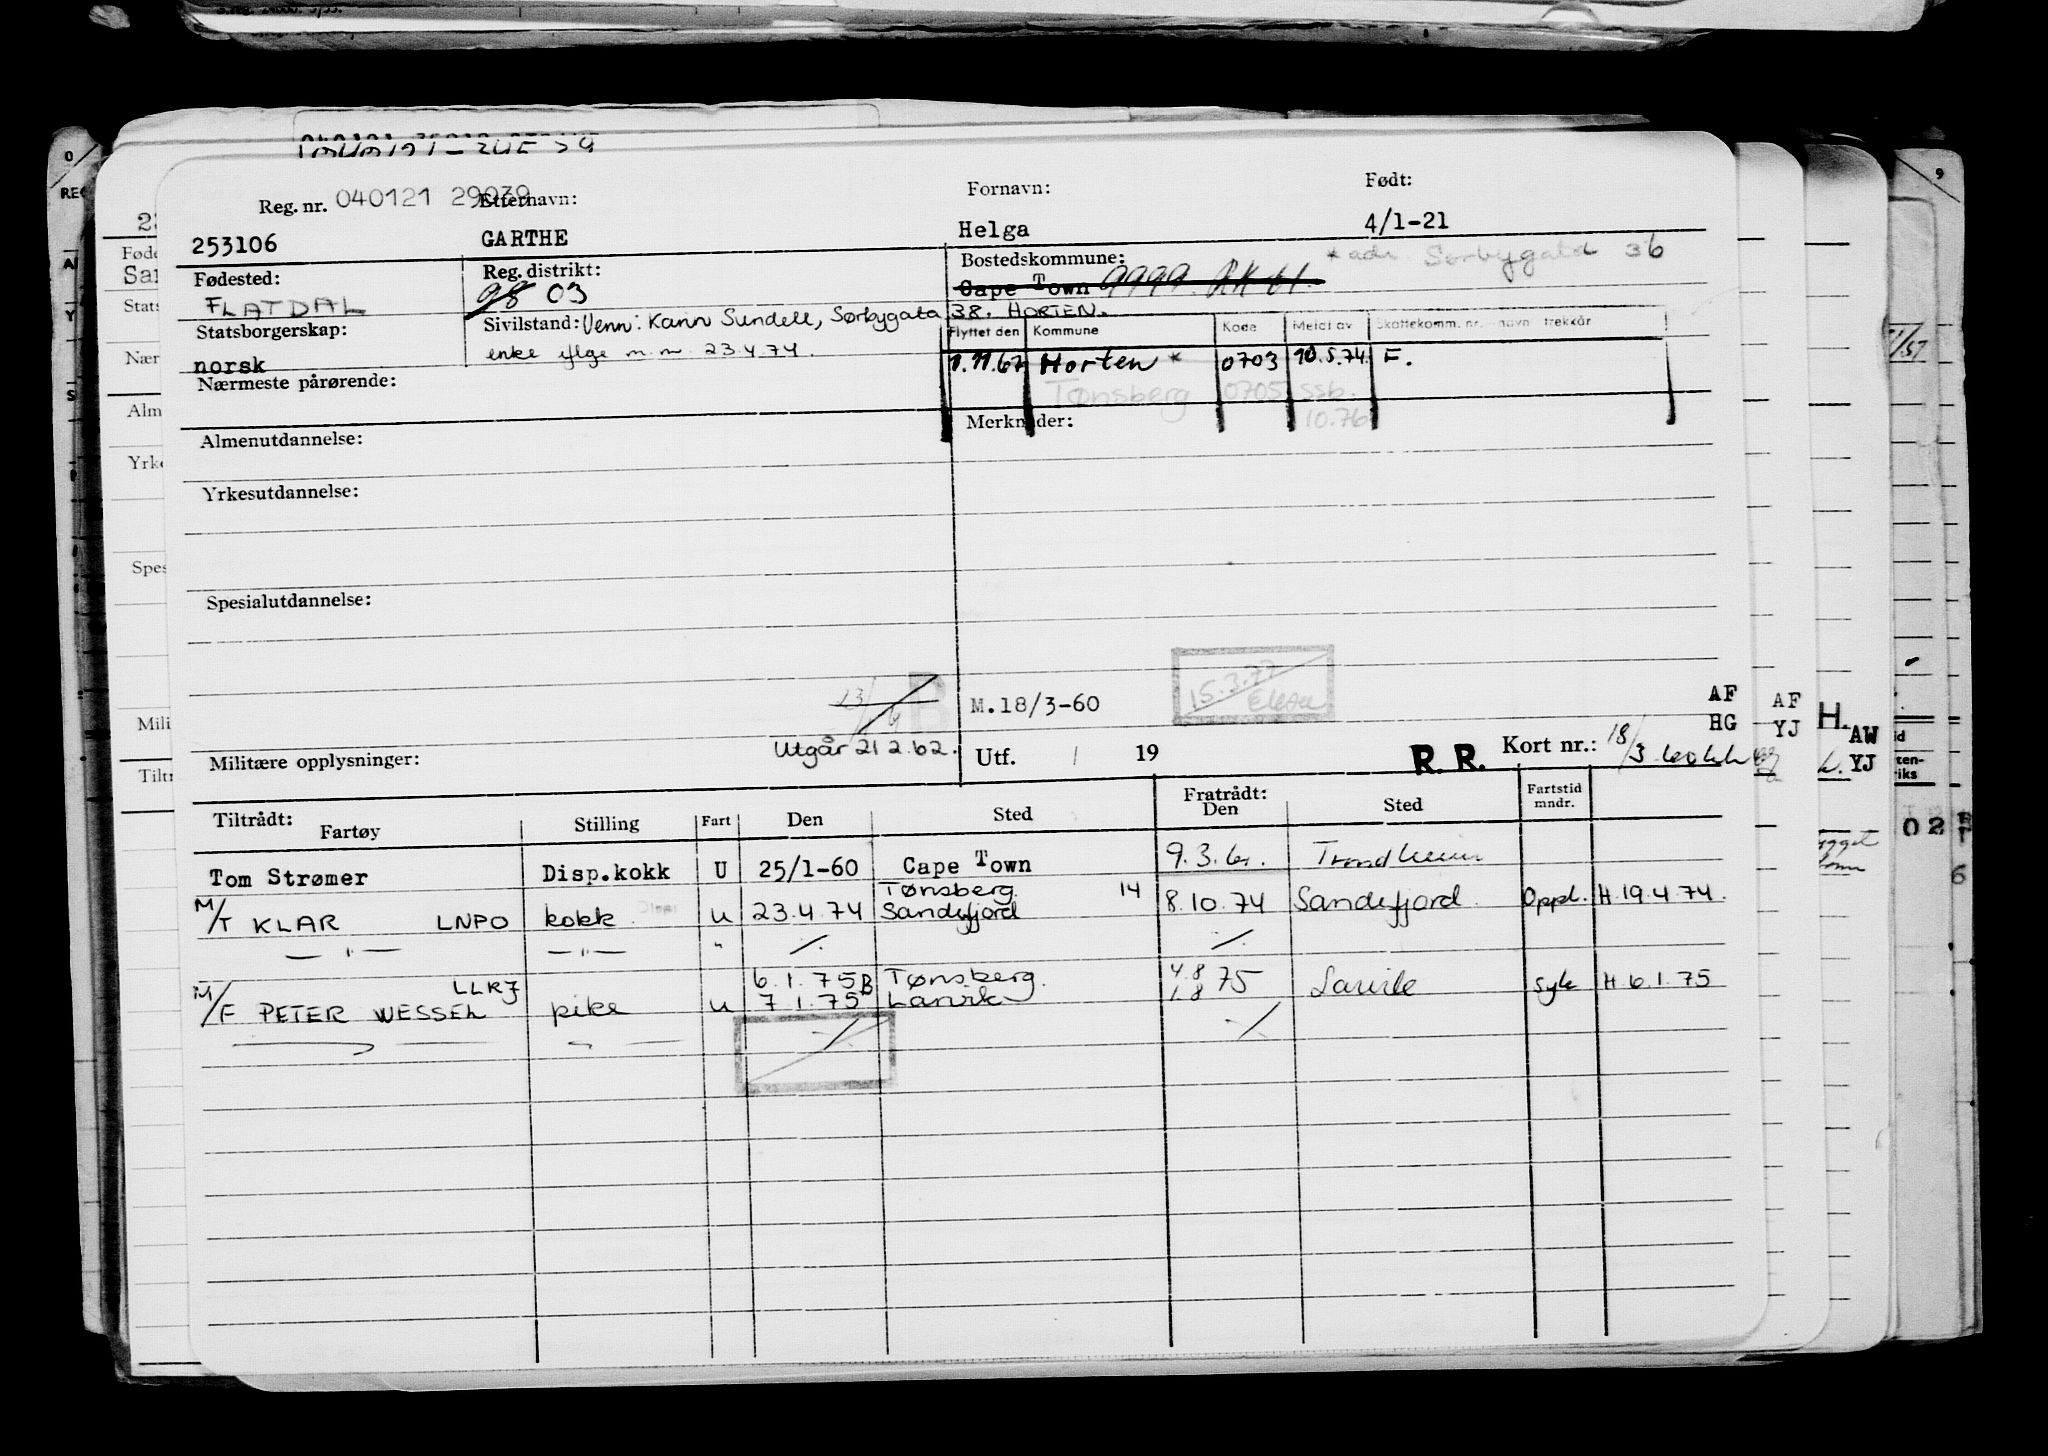 Reg. nr. 040121 29039 Etternavn: Fornavn: Født:
253106 GARTHE Helga 4/1-21
Fødested: Reg. distrikt: Bostedskommune: * adr. Sørbygata 36
FLATDAL 98 03 Cape Town 9999
Statsborgerskap: Sivilstand: Venn: Karin Sundell, Sørbygata 38. HORTEN.
norsk enke iflge m.m. 23.4.74.
Flyttet den Kommune Kode Meldt av Skattekomm. nr. navn trekkår
1.11.67 Horten * 0703 10.5.74 F.
Tønsberg 0705 ssb. 10.76
Nærmeste pårørende:
Merknader:
Almenutdannelse:
Yrkesutdannelse:
Spesialutdannelse:
B M.18/3-60 15.3.77
AF
HG
Utgår 21 2.62.
Militære opplysninger: Utf. / 19 R. R. Kort nr.: 18/3
Tiltrådt: Fratrådt:
Fartøy Stilling Fart Den Sted Den Sted Fartstid mndr.
Tom Strømer Disp.kokk U 25/1-60 Cape Town 9.3.61. Trondheim
M/T KLAR LNPO kokk U 23.4.74 Tønsberg. Sandefjord 14 8.10.74 Sandefjord Oppd. H.19.4.74.
— " — — " — "
M/F PETER WESSEL LLRJ pike U 6.1.75 B Tønsberg. 4.8 75 Larvik syk H 6.1.75
7.1.75 Larvik 1.8
AF
YJ
H.
AW
YJ
02
6
9